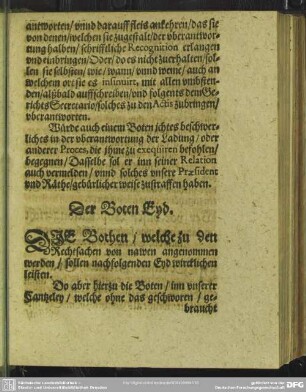 antworten / vnnd darauff fleis ankehren / das sie
von denen / welchen sie zugestalt / der vberantwor-
tung halben / schrifftliche Recognition erlangen
vnd einbringen / Oder / do es nicht zuerhalten / sol-
len sie selbsten / wie / wann / vnnd weme / auch an
welchem ort sie es insinuirt, mit allen vmbsten-
den / alsbald auffschreiben / vnd folgents dem Ge-
richts Secretario / solches zu den Actis zubringen /
vberantworten.
Würde auch einem Boten ichtes beschwer-
liches in der vberantwortung der Ladung / oder
anderer Proces, die ihme zu exequiren befohlen /
begegnen / Dasselbe sol er inn seiner Relation
auch vermelden / vnnd solches vnsere Præsident
vnd Räthe / gebürlicher weise zustraffen haben.
Der Boten Eyd.
DIE Bothen / welche zu den
Rechtsachen von nawen angenommen
werden / sollen nachfolgenden Eyd wircklichen
leisten.
Do aber hierzu die Boten / inn vnserer
Cantzeley / welche ohne das geschworen / ge-
braucht